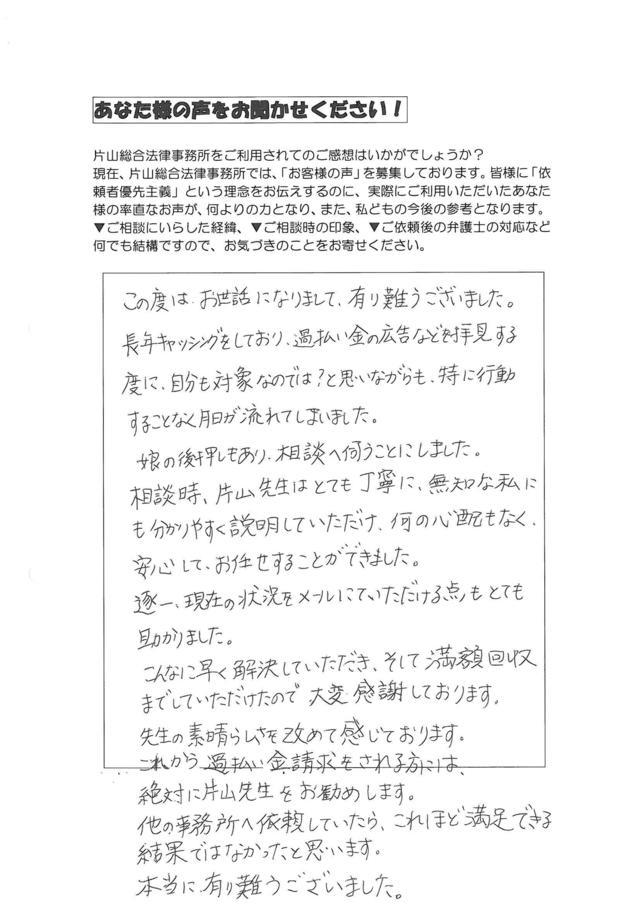 あなた様の声をお聞かせください！
片山総合法律事務所をご利用されてのご感想はいかがでしょうか？
現在、片山総合法律事務所では、「お客様の声」を募集しております。皆様に「依
頼者優先主義」という理念をお伝えするのに、実際にご利用いただいたあなた
様の率直なお声が、何よりの力となり、また、私どもの今後の参考となります。
▼ご相談にいらした経緯、▼ご相談時の印象、▼ご依頼後の弁護士の対応など
何でも結構ですので、お気づきのことをお寄せください。
この度は、お世話になりまして、有り難うございました。
長年キャッシングをしており、過払い金の広告などを拝見する
度に、自分も対象なのでは？と思いながらも、特に行動
することなく月日が流れてしまいました。
娘の後押しもあり、相談へ伺うことにしました。
相談時、片山先生はとても丁寧に、無知な私に
も分かりやすく説明していただけ、何の心配もなく、
安心して、お任せすることができました。
逐一、現在の状況をメールにていただける点もとても
助かりました。
こんなに早く解決していただき、そして満額回収
までしていただけたので大変感謝しております。
先生の素晴らしさを改めて感じております。
これから過払い金請求をされる方には、
絶対に片山先生をお勧めします。
他の事務所へ依頼していたら、これほど満足できる
結果ではなかったと思います。
本当に有り難うございました。